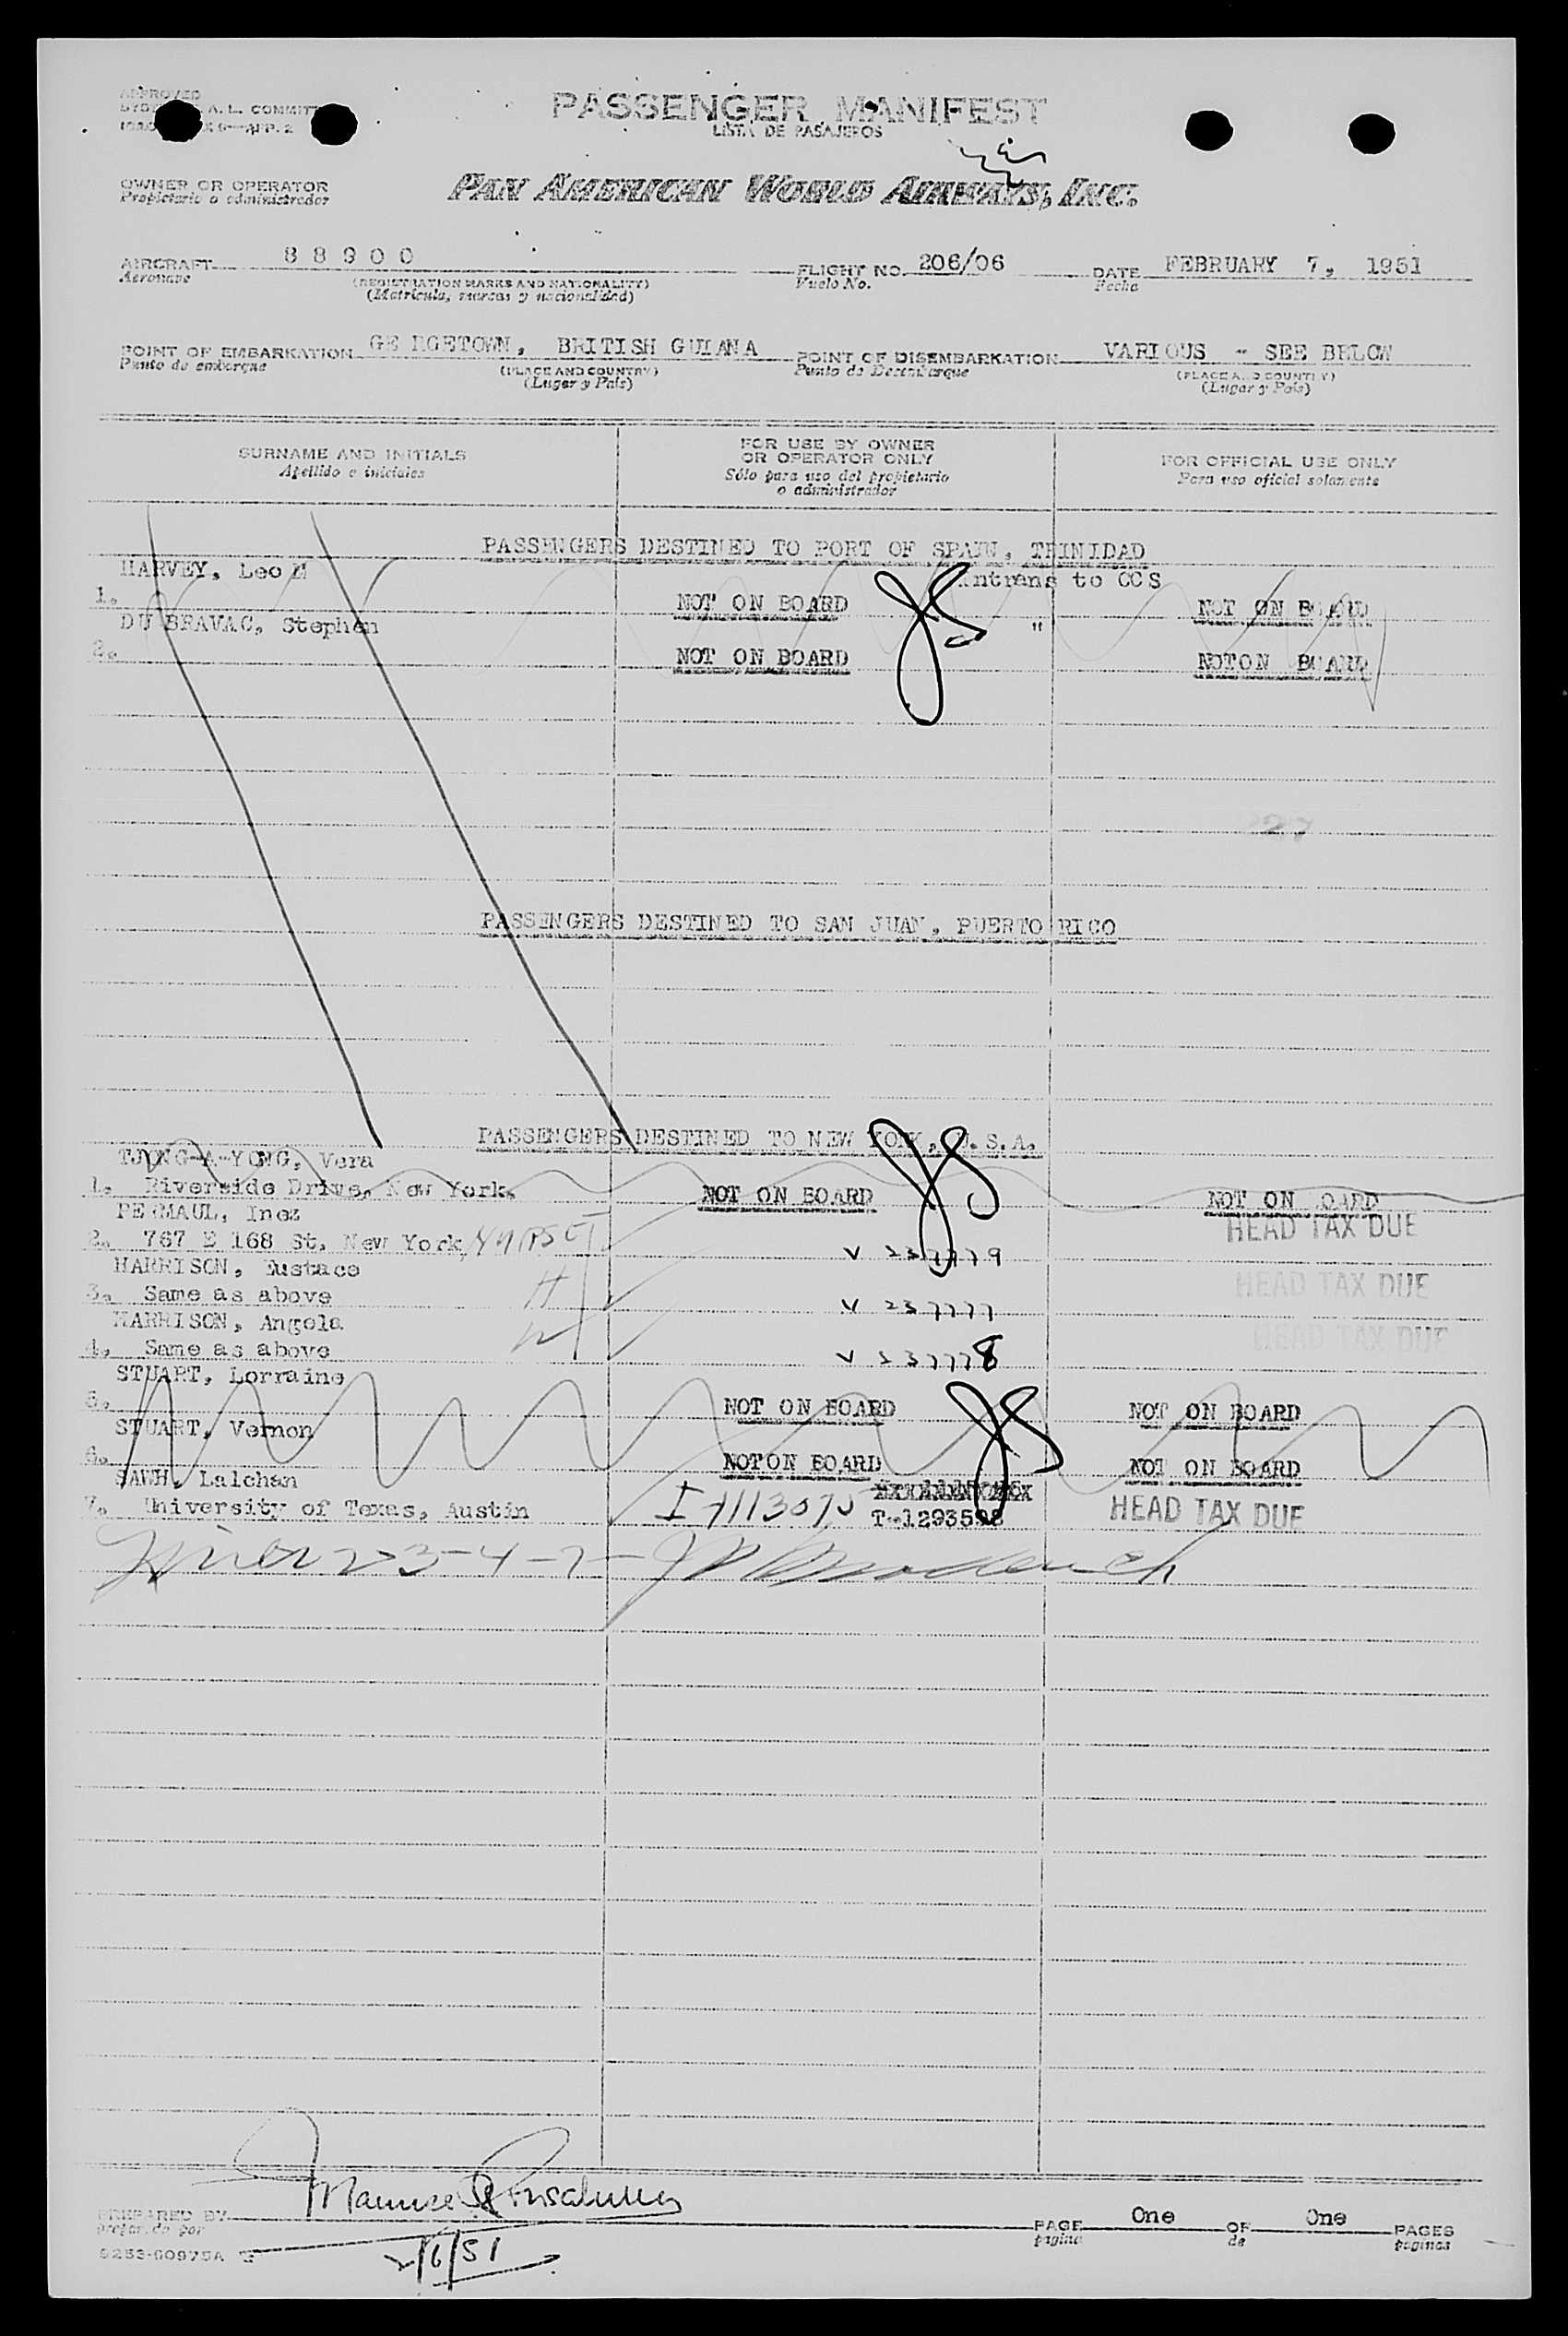 APPROVED
A. L. COMMIT
PASSENGER MANIFEST
LISTA DE PASAJEROS
OWNER OR OPERATOR
Propietario o administrador
PAN AMERICAN WORLD AIRWAYS, INC.
AIRCRAFT 88900 FLIGHT NO. 206/06 DATE FEBRUARY 7, 1951
Aeronave Vuelo No. Fecha
(REGISTRATION MARKS AND NATIONALITY)
(Matrícula, marcas y nacionalidad)
POINT OF EMBARKATION GE RGETOWN, BRITISH GUIANA POINT OF DISEMBARKATION VARIOUS - SEE BELOW
Punto de embarque (PLACE AND COUNTRY) Punto de Desembarque (PLACE AND COUNTRY)
(Lugar y País) (Lugar y País)
SURNAME AND INITIALS FOR USE BY OWNER OR OPERATOR ONLY FOR OFFICIAL USE ONLY
Apellido e iniciales Sólo para uso del propietario o administrador Para uso oficial solamente
PASSENGERS DESTINED TO PORT OF SPAIN, TRINIDAD
HARVEY, Leo M Intrans to CCS
1. NOT ON BOARD NOT ON BOARD
DU BRAVAC, Stephen "
2. NOT ON BOARD NOTON BOARD
27
PASSENGERS DESTINED TO SAN JUAN, PUERTO RICO
PASSENGERS DESTINED TO NEW YORK, U.S.A.
TJONG-A-YONG, Vera
1. Riverside Drive, New York. NOT ON BOARD NOT ON OARD
PERMAUL, Inez HEAD TAX DUE
2. 767 E 168 St. New York V 237779
HARRISON, Eustace HEAD TAX DUE
3. Same as above V 237777
HARRISON, Angela HEAD TAX DUE
4. Same as above V 237778
STUART, Lorraine
5. NOT ON BOARD NOT ON BOARD
STUART, Vernon
6. NOTON BOARD NOT ON BOARD
SAWH, Lalchan
7. University of Texas, Austin I-1113075 T-1293598 HEAD TAX DUE
2-3-4-7-
PREPARED BY Maurice
PAGE One OF One PAGES
página de páginas
2/6/51